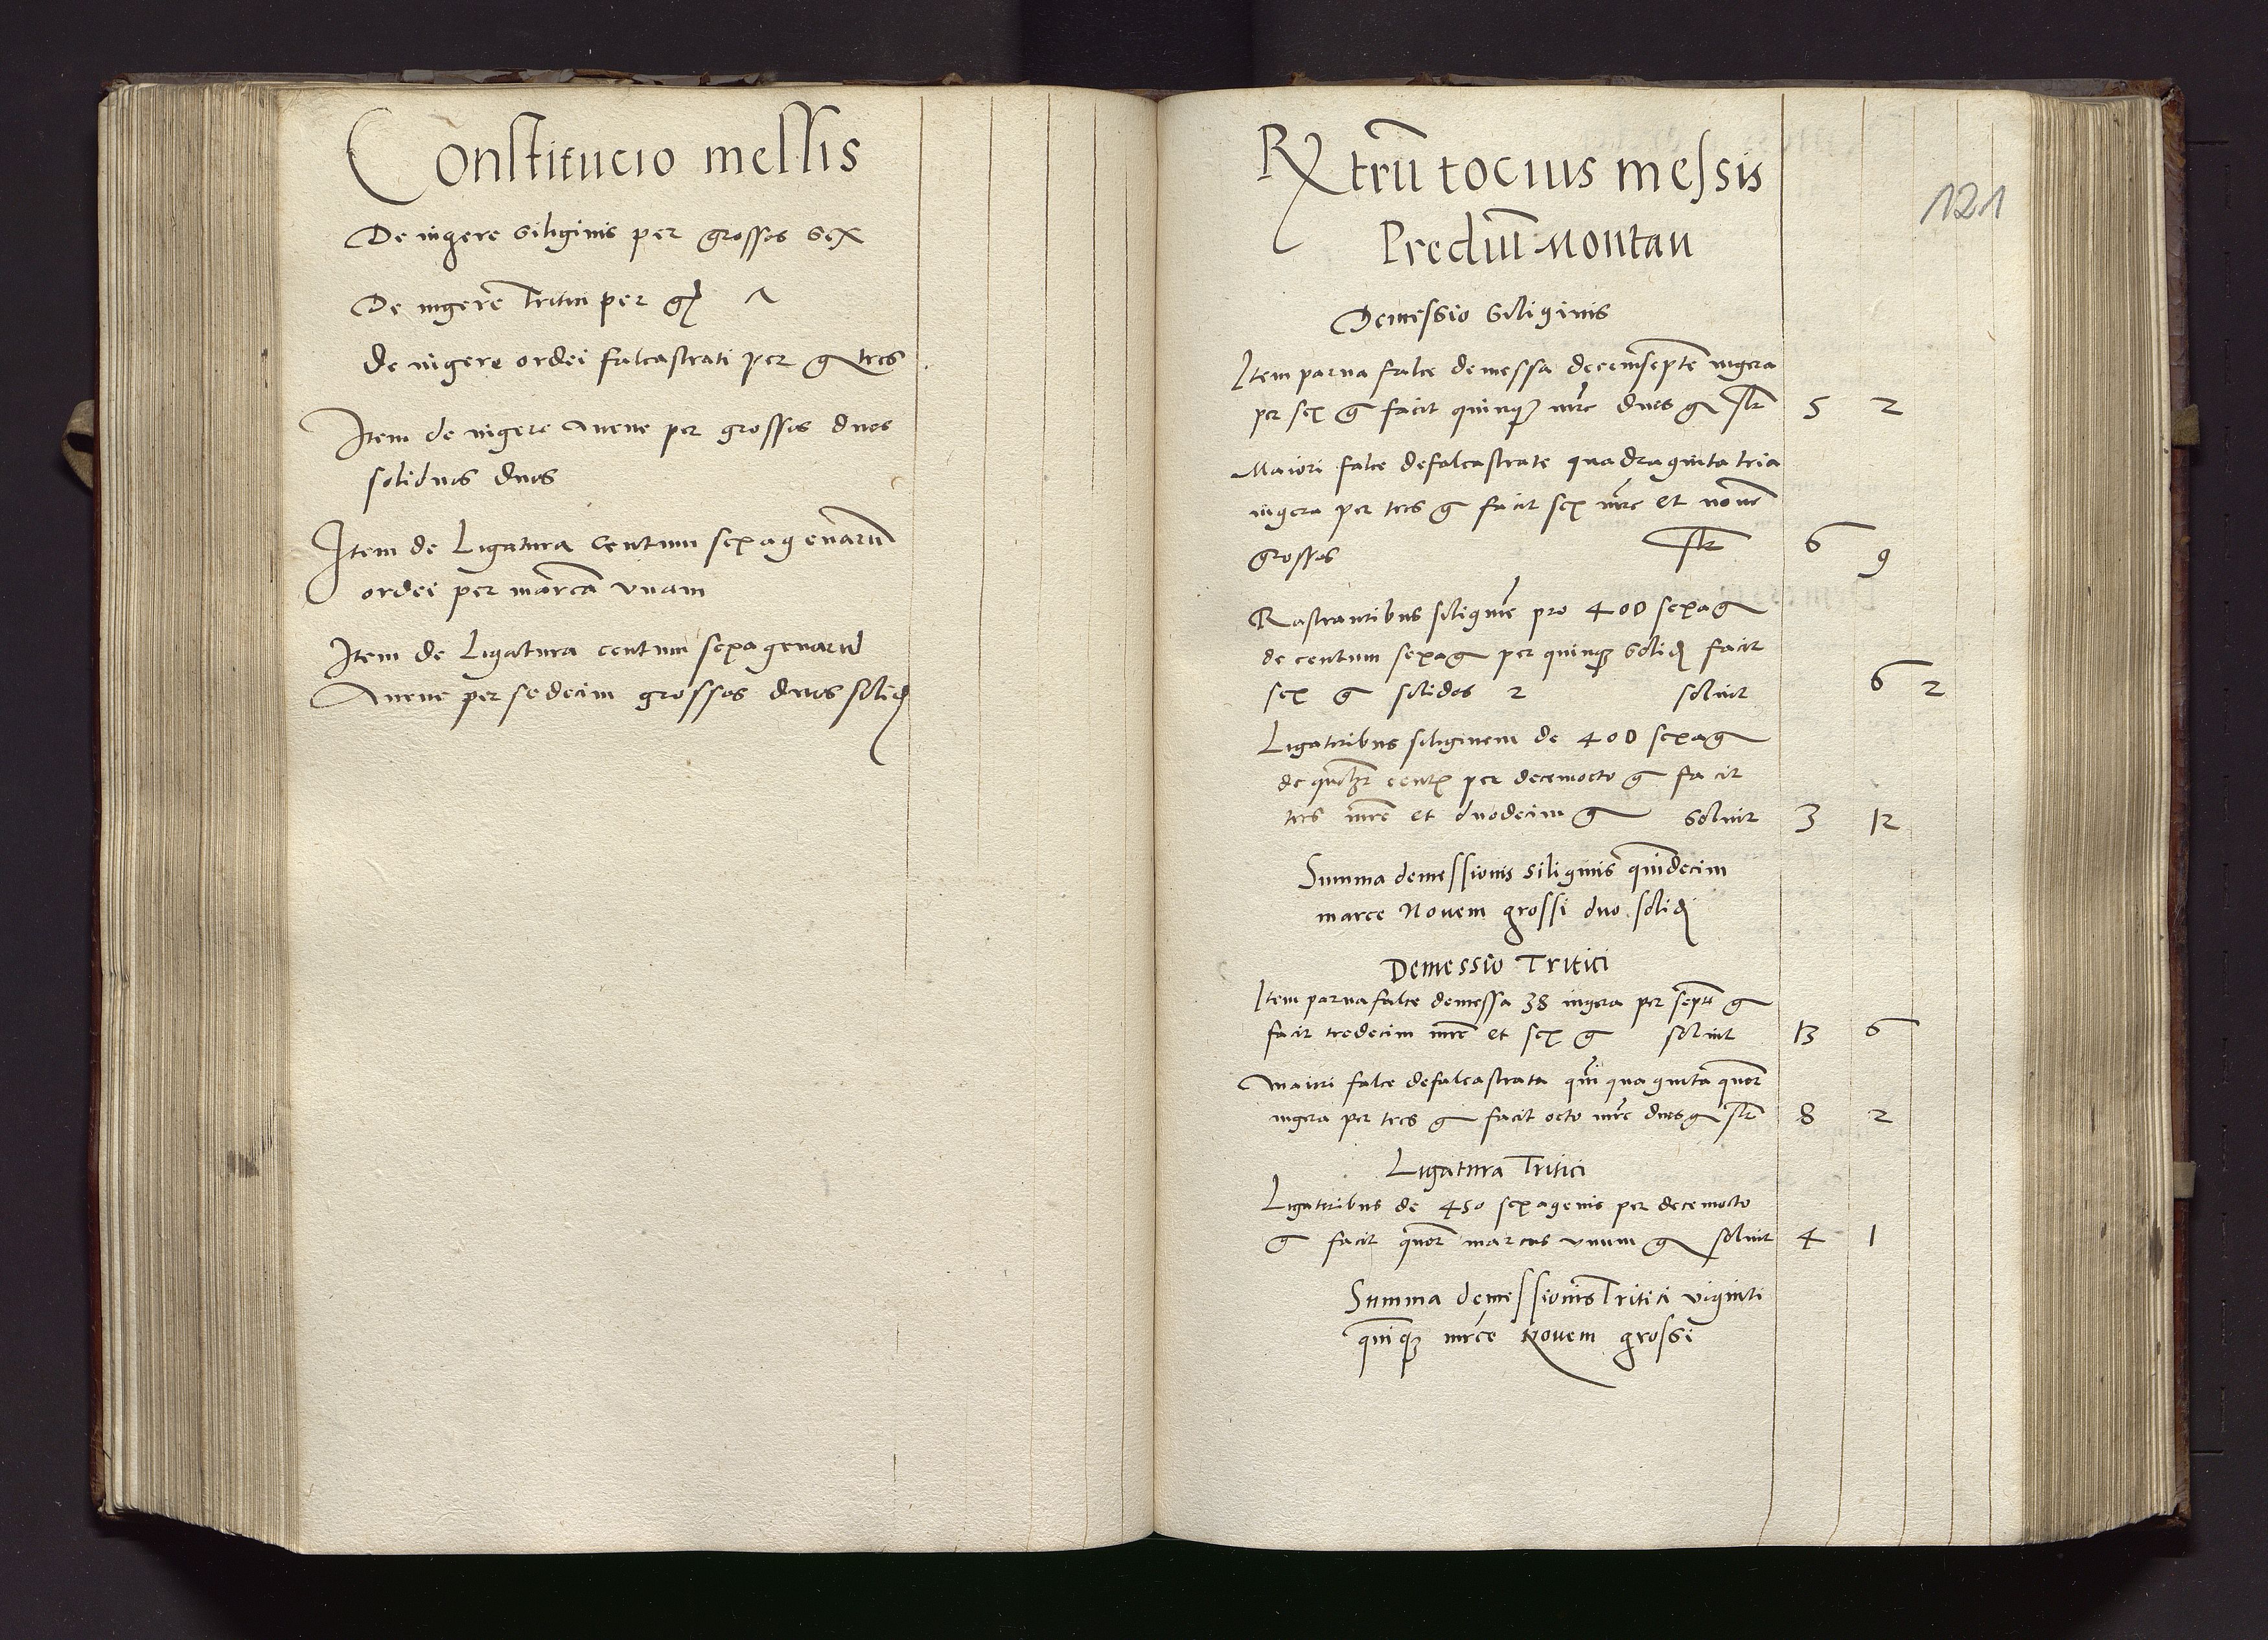 Constitucio messis
De iugere siliginis per grossos sex
De iugere Tritici per g 7
De iugere ordei falcastrati per g tres
Item de iugere Avene per grossos duos
solidos duos
Item de Ligatura centum sexagenarū
ordei per marcā unam
Item de Ligatura centum sexagenarū
Avene per sedecim grossos duos solid
R trū tocius messis
Prediū Montan
121
Demessio siliginis
Item parva falce demessa decemseptē iugera
per sex g facit quinqꝫ mrc duos g slr 5 2
Maiori falce defalcastrate quadraginta tria
iugera per tres g facit sex mrc et novē
grossos slr 6 9
Rastrantibus siliginē pro 400 sexag
de centum sexag per quinqꝫ solid facit
sex g solidos 2 solvit 6 2
Ligatoribus siliginem de 400 sexag
de cent per decemocto g facit
tres mrc et duodecim g solvit 3 12
Summa demessionis siliginis quīdecim
marce Novem grossi duo solidi
Demessio Tritici
Item parva falce demessa 38 iugera per septē g
facit tredecim mrc et sex g solvit 13 6
Maiori falce defalcastrata quīquaginta quor
iugera per tres g facit octo mrc duos g slr 8 2
Ligatura Tritici
Ligatoribus de 450 sexagenis per decemocto
g facit quor marcas unum g solvit 4 1
Summa demessionis Tritici viginti
quīqꝫ mrce Novem grossi